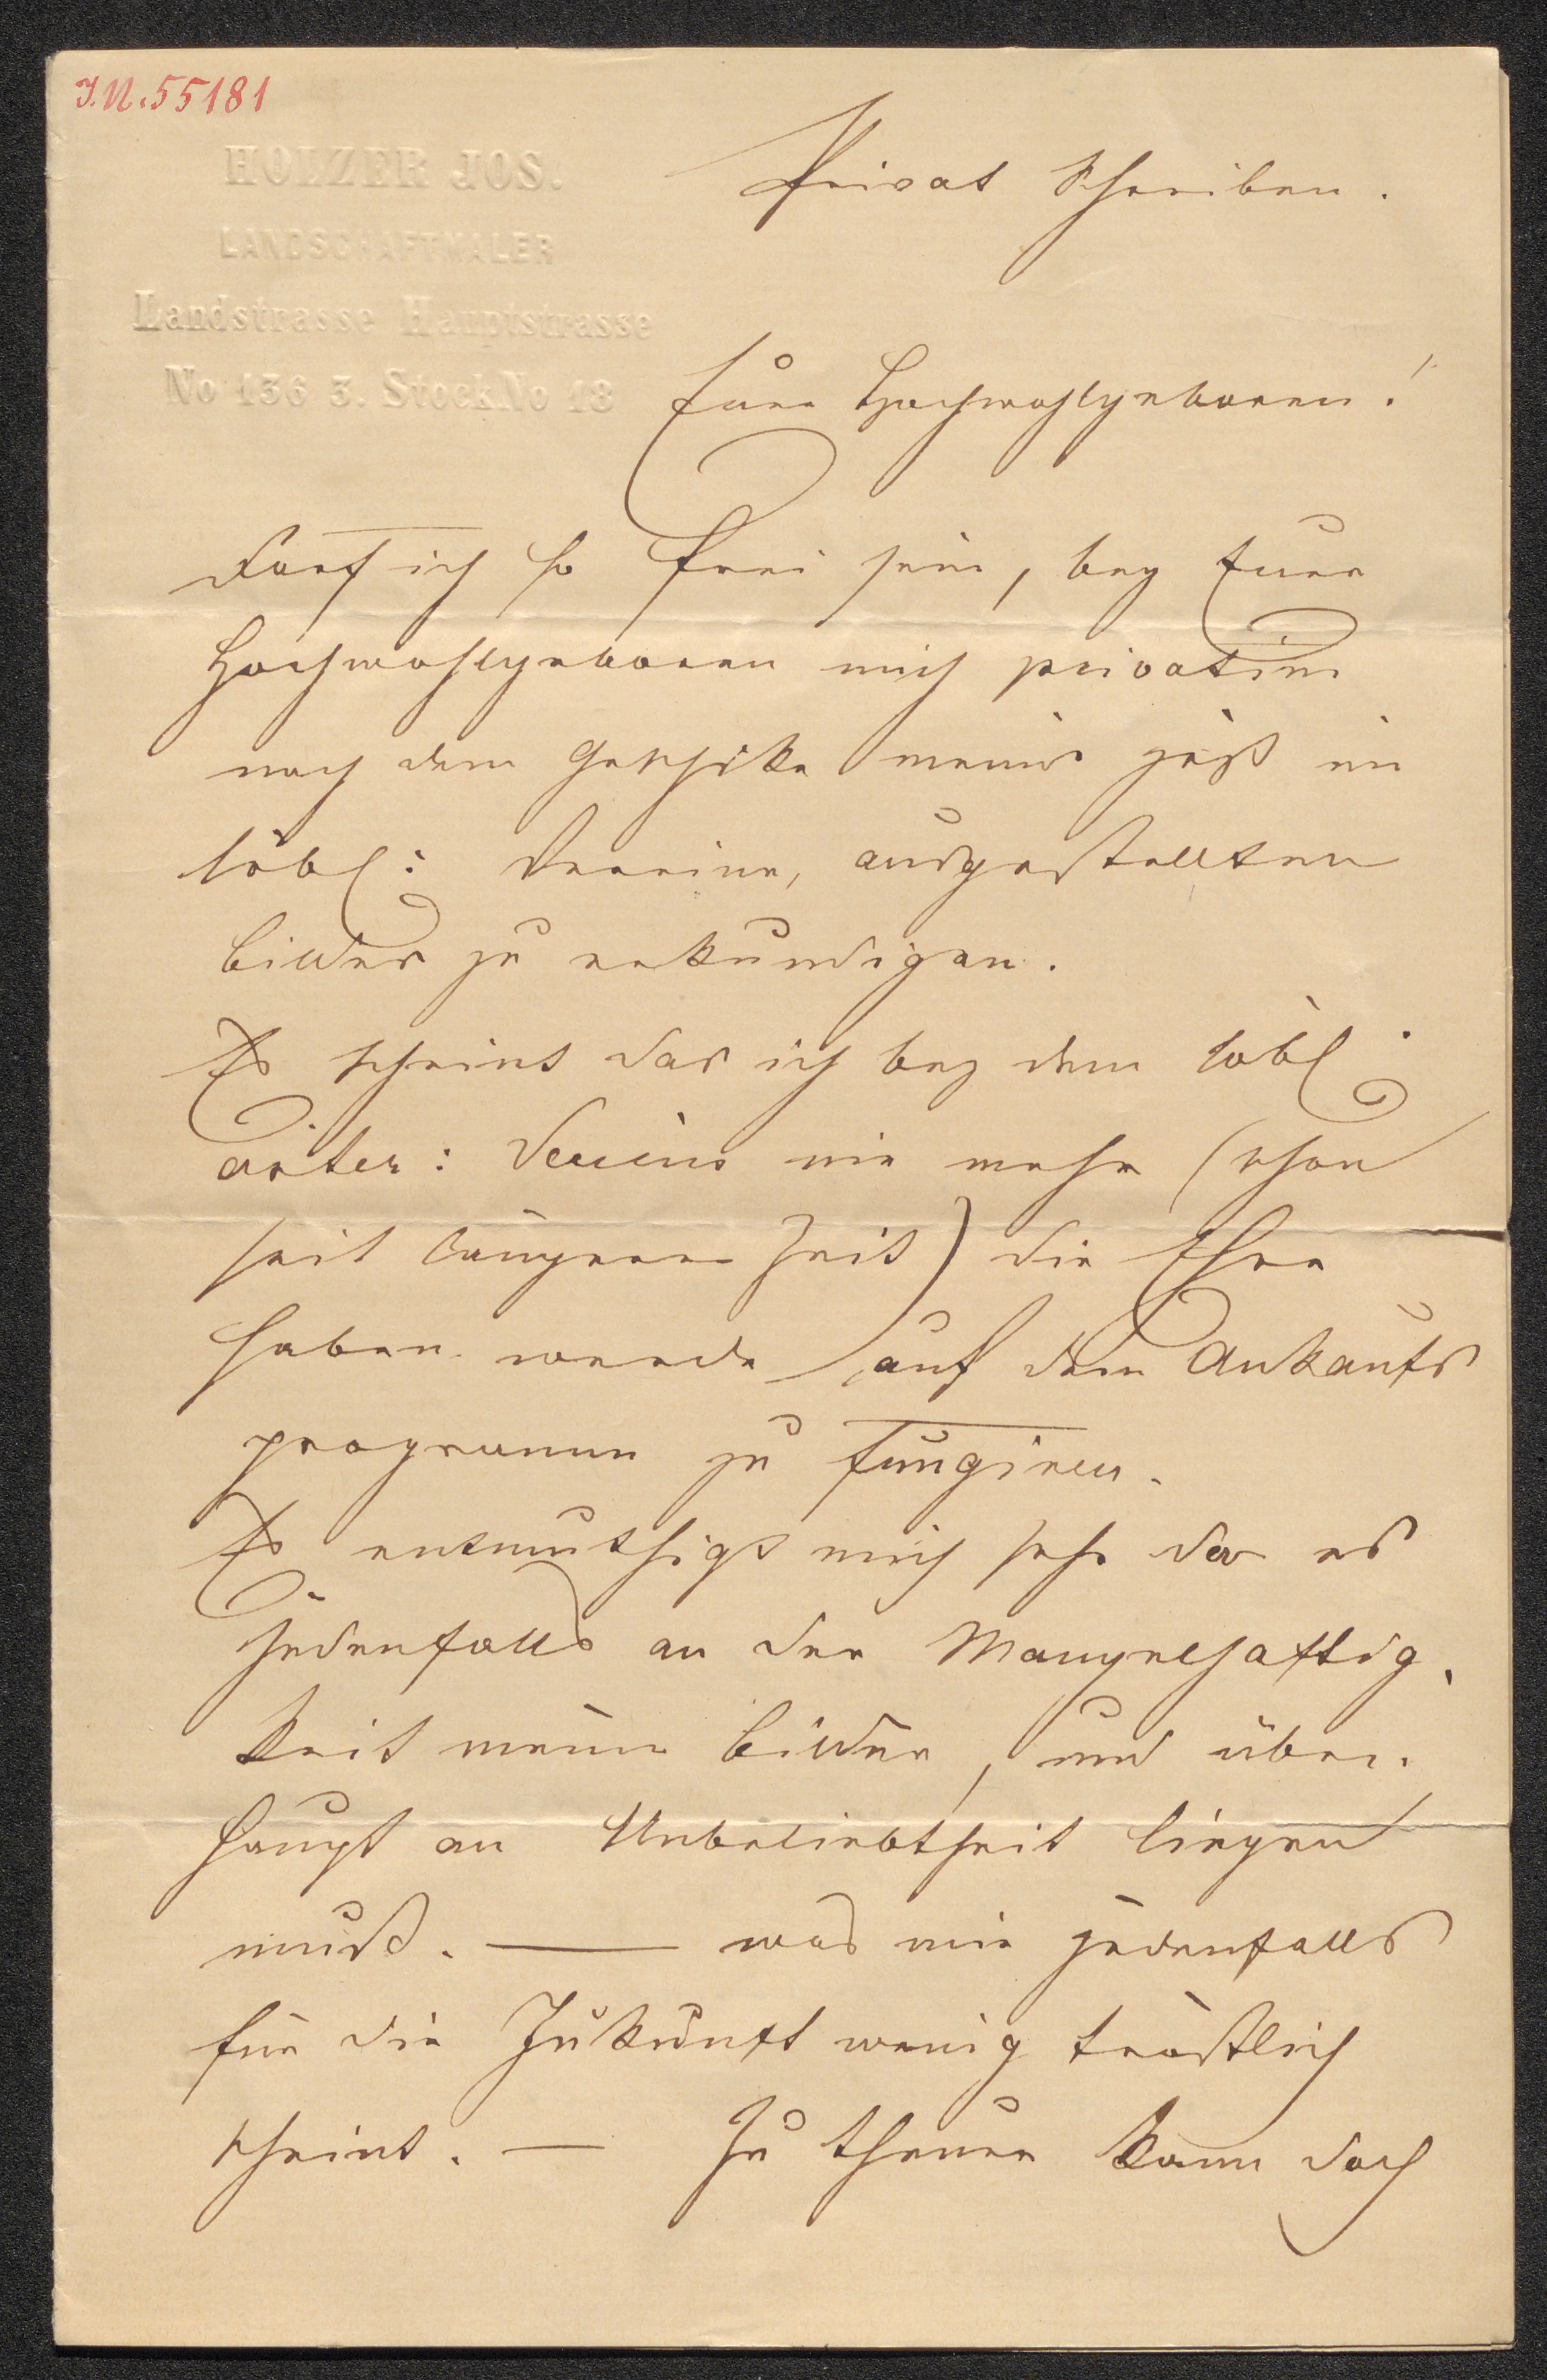 J.N. 55181
HOLZER JOS.
LANDSCHAFTMALER
Landstrasse Hauptstrasse
No 136 3. Stock No 18
Privat Schreiben.
Euer Hochwohlgeboren!
Darf ich so frei sein, bey Euer
Hochwohlgeboren mich privatim
nach dem Geschike meines jetzt im
löbl: Vereine, ausgestellten
Bildes zu erkundigen.
Es scheint das ich bey dem löbl
öster: Verein nie mehr (schon
seit längerer Zeit) die Ehre
haben werde auf dem Ankaufs
programm zu fungiren.
Es entmuthigt mich sehr da es
jedenfalls an der Mangelhaftig,
keit meiner Bilder, und über,
haupt an Unbeliebtheit liegen
muß. — was mir jedenfalls
für die Zukunft wenig tröstlich
scheint. — Zu theuer kann doch